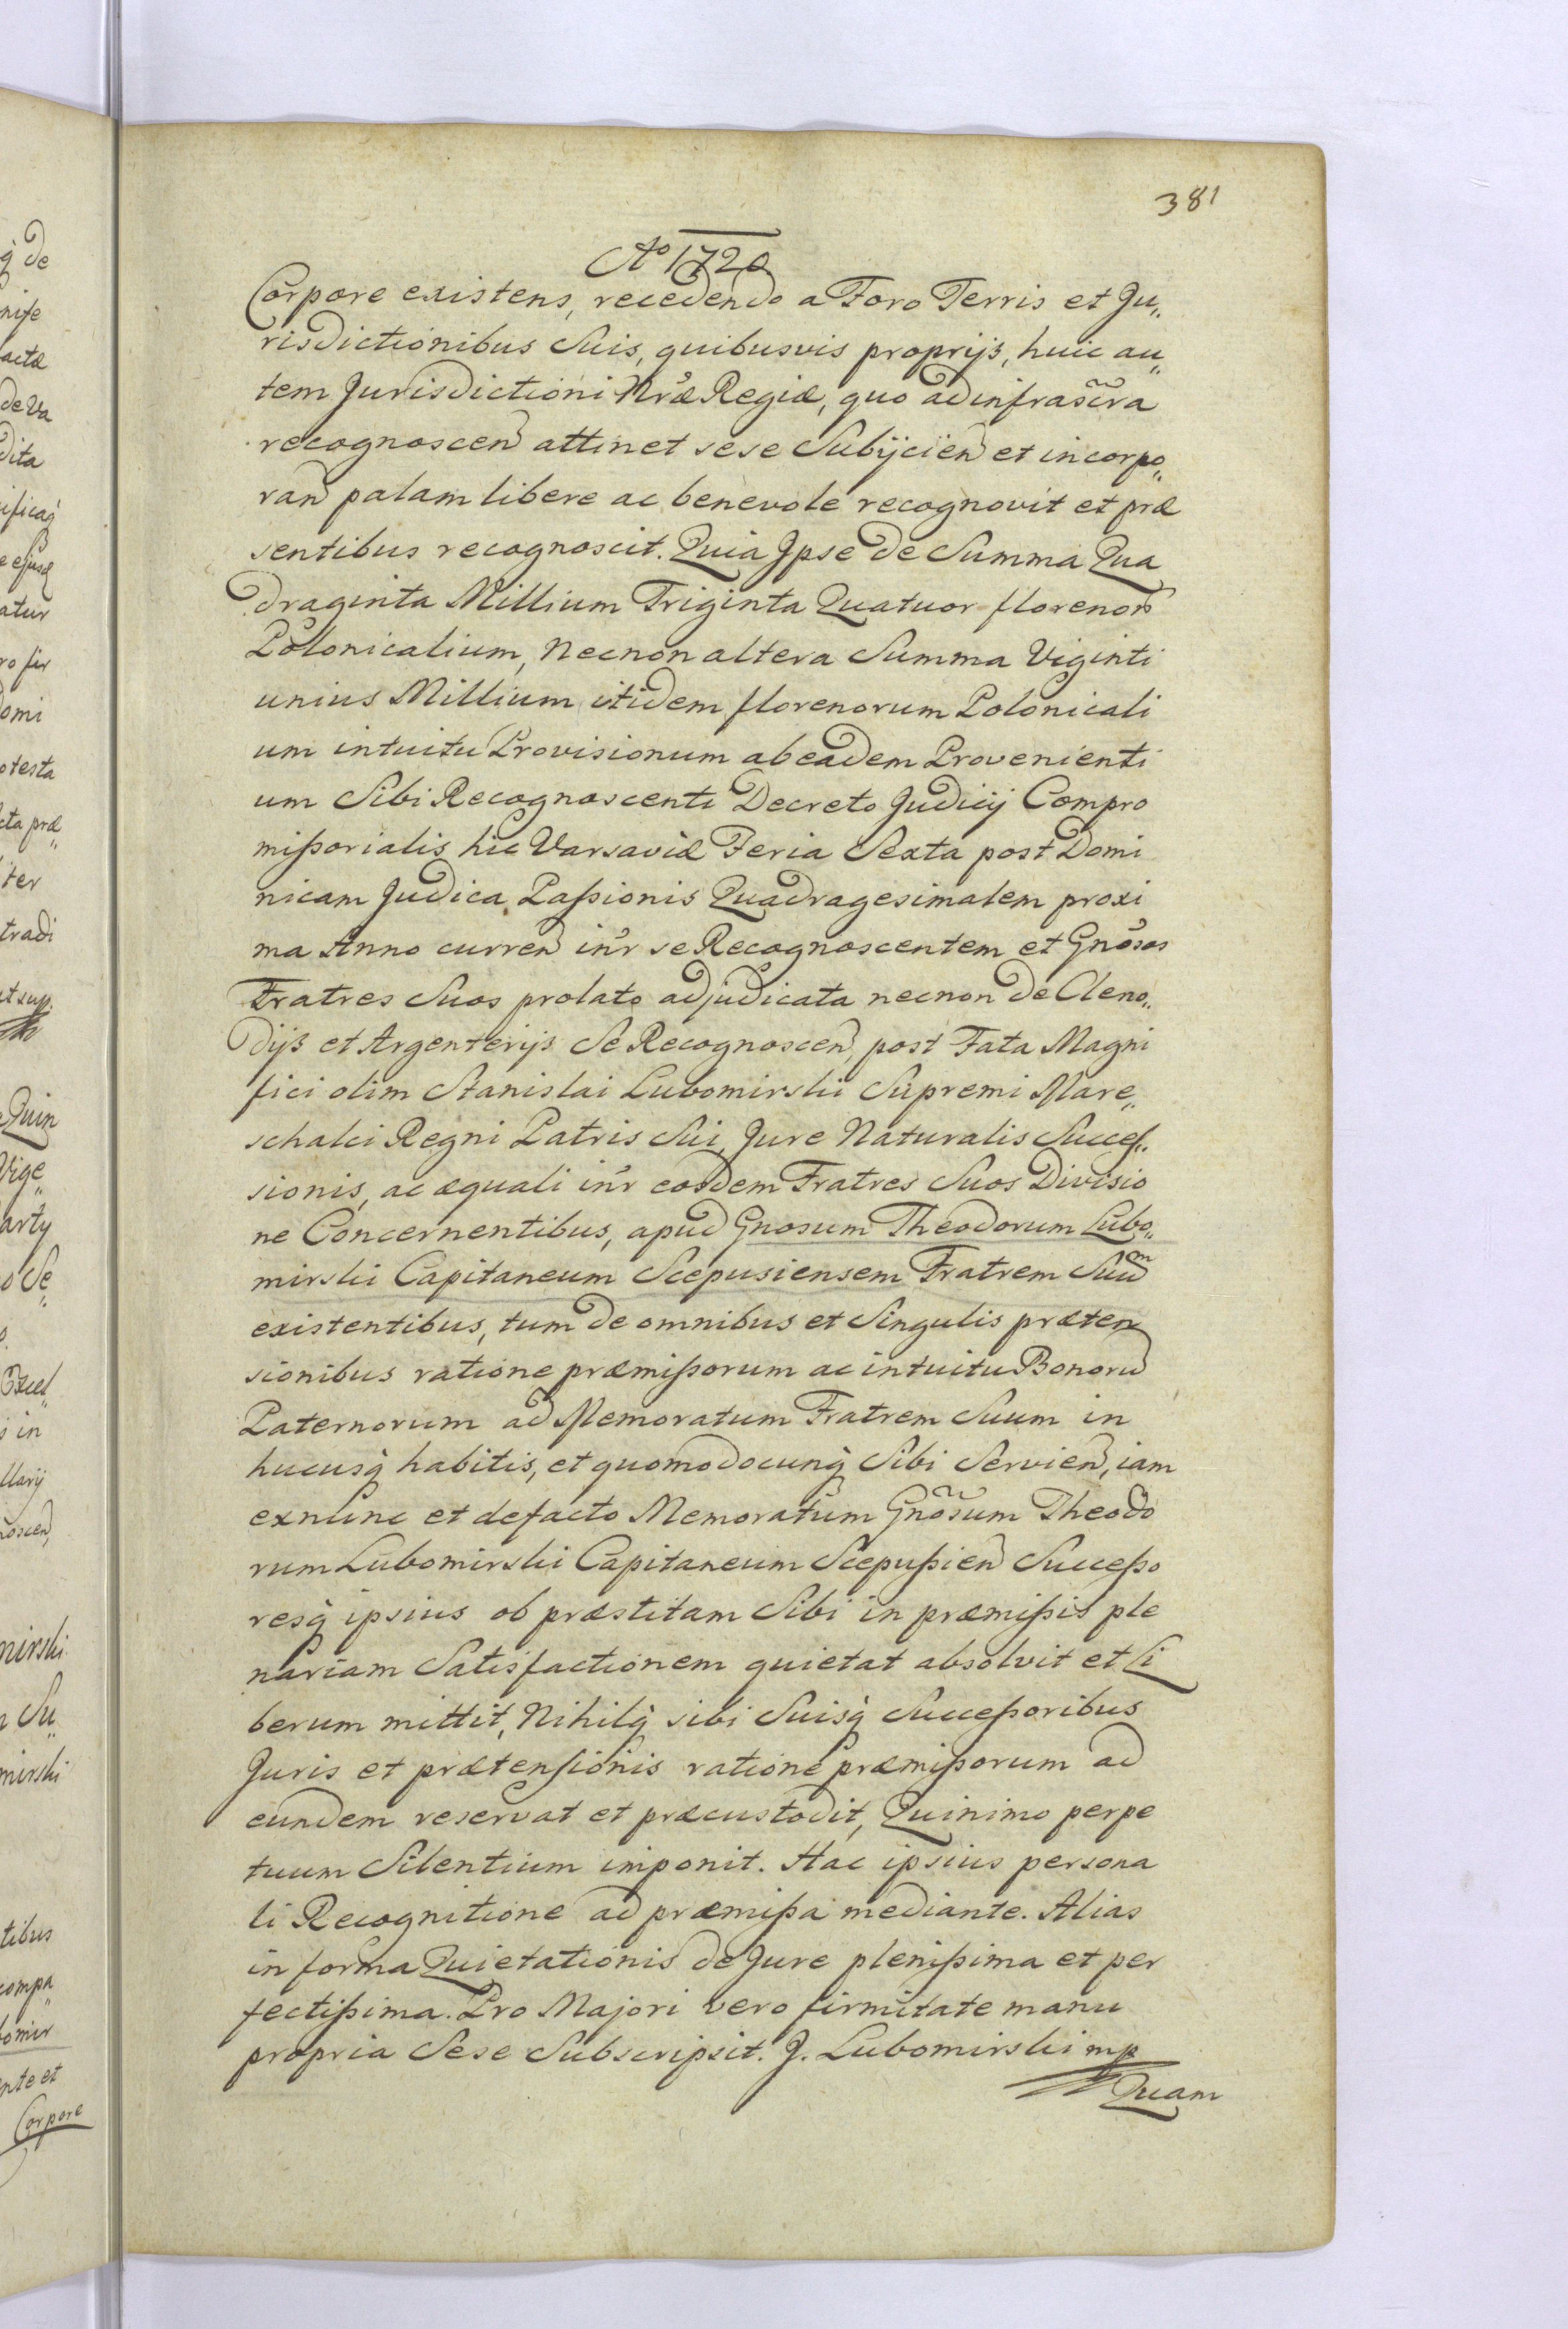 381
Aº 1720
Corpore existens, recedendo a Foro Terris et Ju„
risdictionibus Suis, quibusvis proprijs, huic au„
tem Jurisdictioni Nræ Regiæ, quo ad infrascra
recognoscen attinet sese Subijcien et incorpo„
ran palam libere ac benevole recognovit et præ
sentibus recognoscit. Quia Ipse de Summa Qua
draginta Millium Triginta Quatuor florenor
Polonicalium, Necnon altera Summa Viginti
unius Millium itidem florenorum Polonicali
um intuitu Provisionum ab eadem Provenienti
um Sibi Recognoscenti Decreto Judicij Compro
mißorialis hic Varsaviæ Feria Sexta post Domi
nicam Judica Paßionis Quadragesimalem proxi
ma Anno curren inr se Recognoscentem et Gnosos
Fratres Suos prolato adjudicata necnon de Cleno„
dijs et Argenterijs Se Recognoscen, post Fata Magni
fici olim Stanislai Lubomirski Supremi Mare„
schalci Regni Patris Sui, Jure Naturalis Succes„
sionis, ac æquali inr eosdem Fratres Suos Divisio
ne Concernentibus, apud Gnosum Theodorum Lubo„
mirski Capitaneum Scepusiensem Fratrem Suum
existentibus, tum de omnibus et Singulis præten
sionibus ratione præmißorum ac intuitu Bonoru
Paternorum ad Memoratum Fratrem Suum in
hucusq habitis, et quomodocunq Sibi Servien, iam
exnunc et defacto Memoratum Gnosum Theodo
rum Lubomirski Capitaneum Scepußien Succeßo
resq ipsius ob præstitam Sibi in præmißis ple
nariam Satisfactionem quietat absolvit et Li
berum mittit, Nihilq sibi Suisq Succeßoribus
Juris et prætensionis ratione præmißorum ad
eundem reservat et præcustodit, Quinimo perpe
tuum Silentium imponit. Hac ipsius persona
li Recognitione ad præmißa mediante. Alias
in forma Quietationis de Jure plenißima et per
fectißima. Pro Majori vero firmitate manu
propria Sese Subscripsit. J. Lubomirski mp
Quam